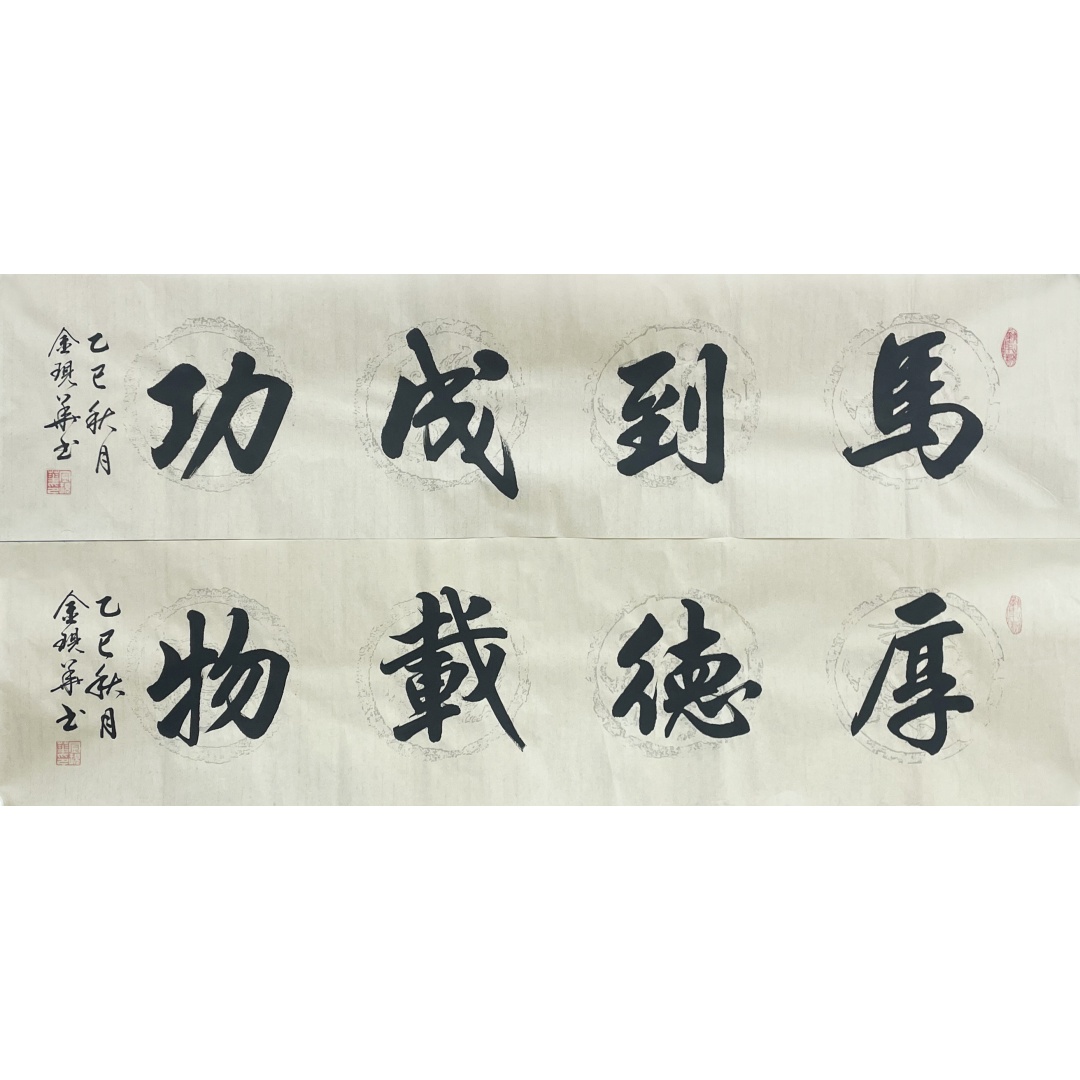 馬到成功
乙巳秋月
金現華书
厚德載物
乙巳秋月
金現華书